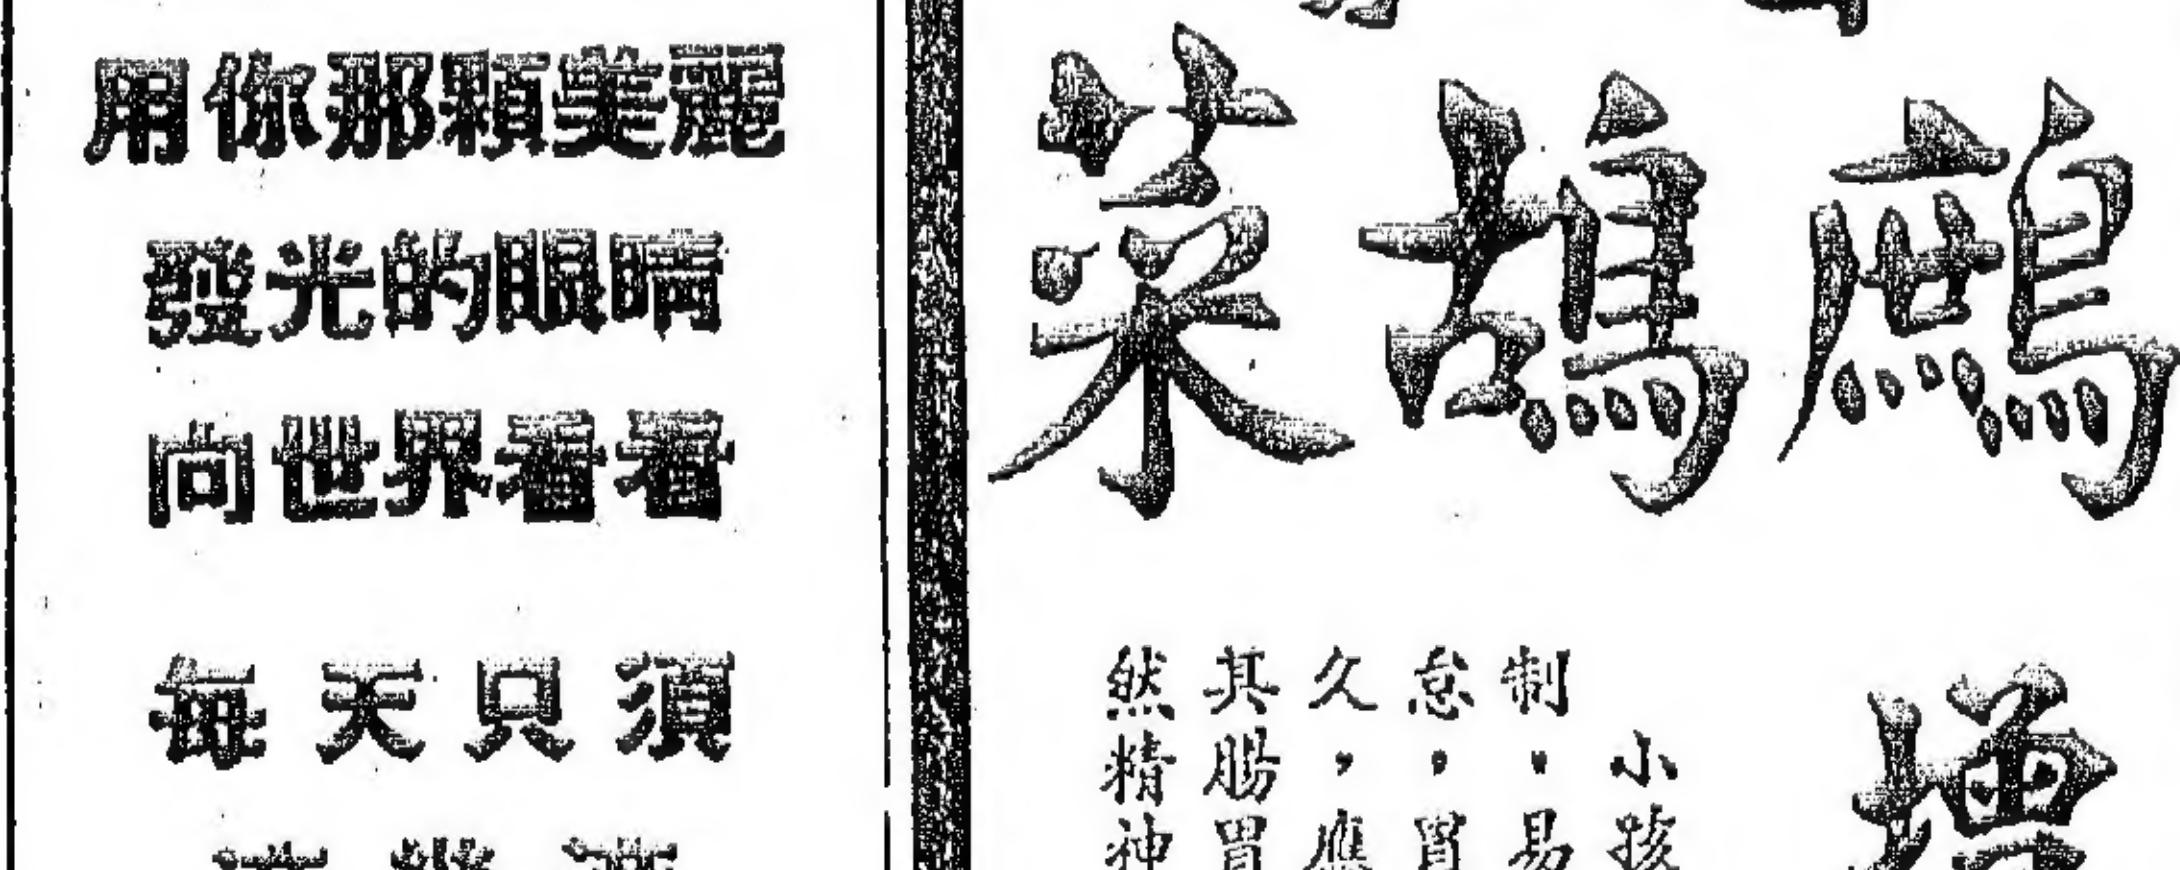 用你那顆美麗
發光的眼睛
向世界看看
每天只須
鷓鴣菜
增
小孩
制．易
怠，胃
久，應
其腸胃
然精神